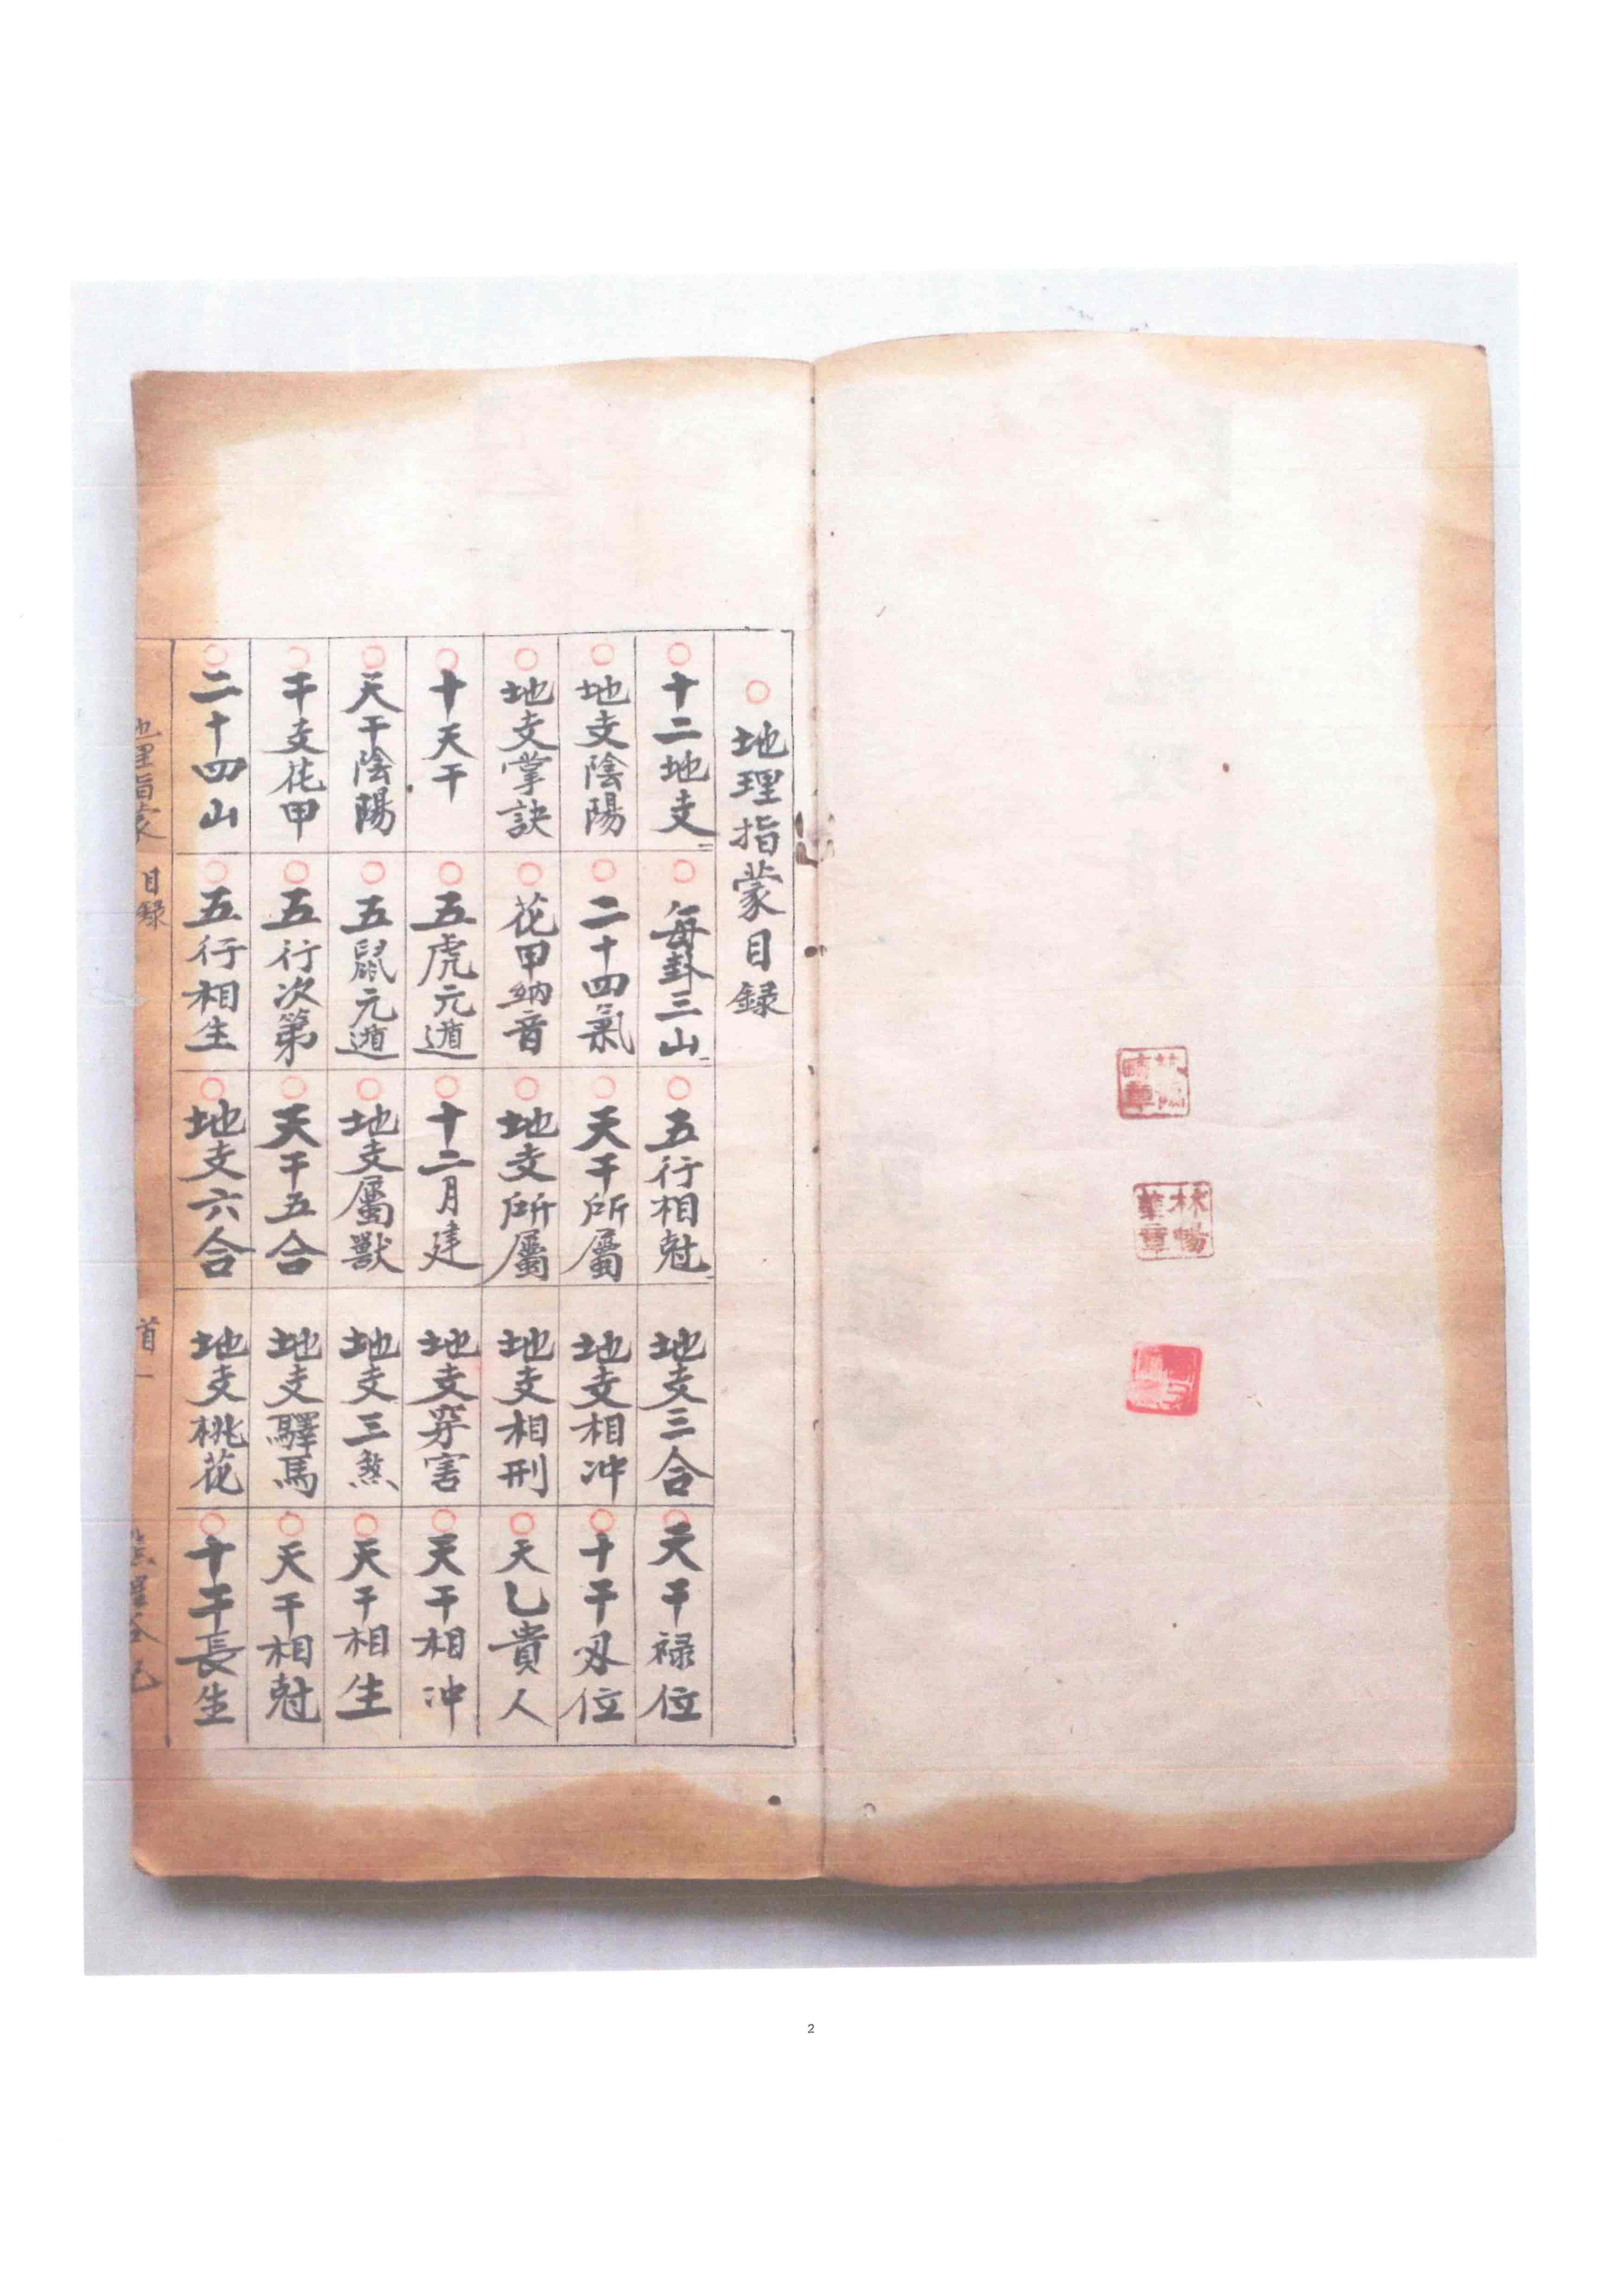 地理指蒙目録
十二地支
地支陰陽
地支掌訣
十天干
天干陰陽
干支花甲
二十四山
每卦三山
二十四氣
花甲納音
五虎元遁
五鼠元遁
五行次第
五行相生
五行相尅
天干所屬
地支所屬
十二月建
地支屬獸
天干五合
地支六合
地支三合
地支相冲
地支相刑
地支穿害
地支三煞
地支驛馬
地支桃花
天干禄位
十干刃位
天乙貴人
天干相冲
天干相生
天干相尅
十干長生
地理指蒙 目録 首一
林暢華章
2